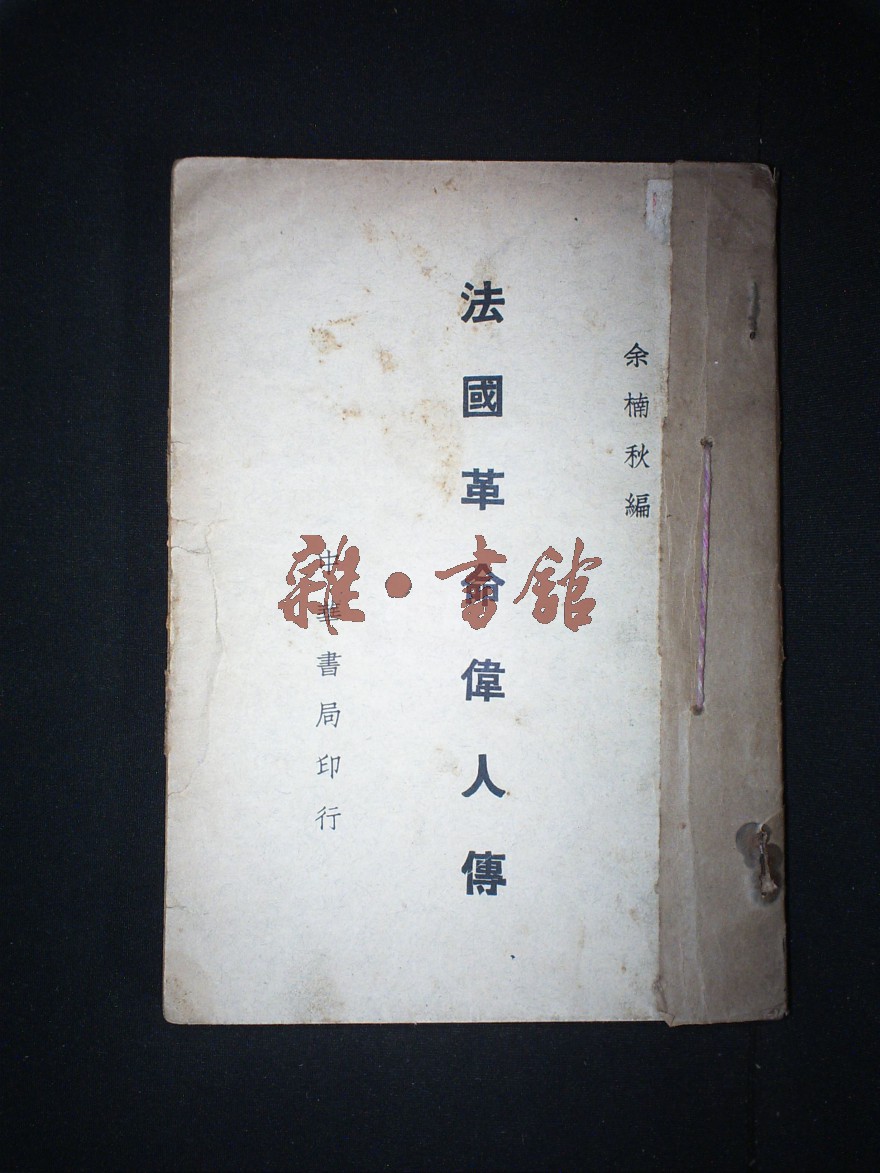 余楠秋編
法國革命偉人傳
中華書局印行
雜·書館